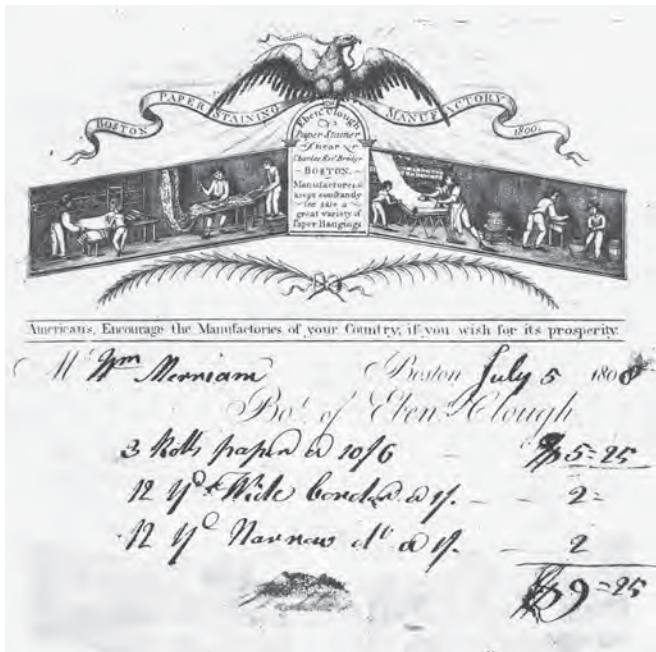 BOSTON PAPER STAINING MANUFACTORY 1800.
Eben.r Clough
Paper Stainer
near
Charles Riv.r Bridge
BOSTON.
Manufactores &
keeps constantly
for sale a
great variety of
Paper Hangings
Americans, Encourage the Manufactories of your Country, if you wish for its prosperity.
Mr Wm Merriam Boston July 5 1800
Bot. of Eben.r Clough
3 Rolls paper a 10/6 - $5=25
12 Yd Wide border a 1/. - - 2=
12 Yd Narrow do a 1/. - 2
$9=25